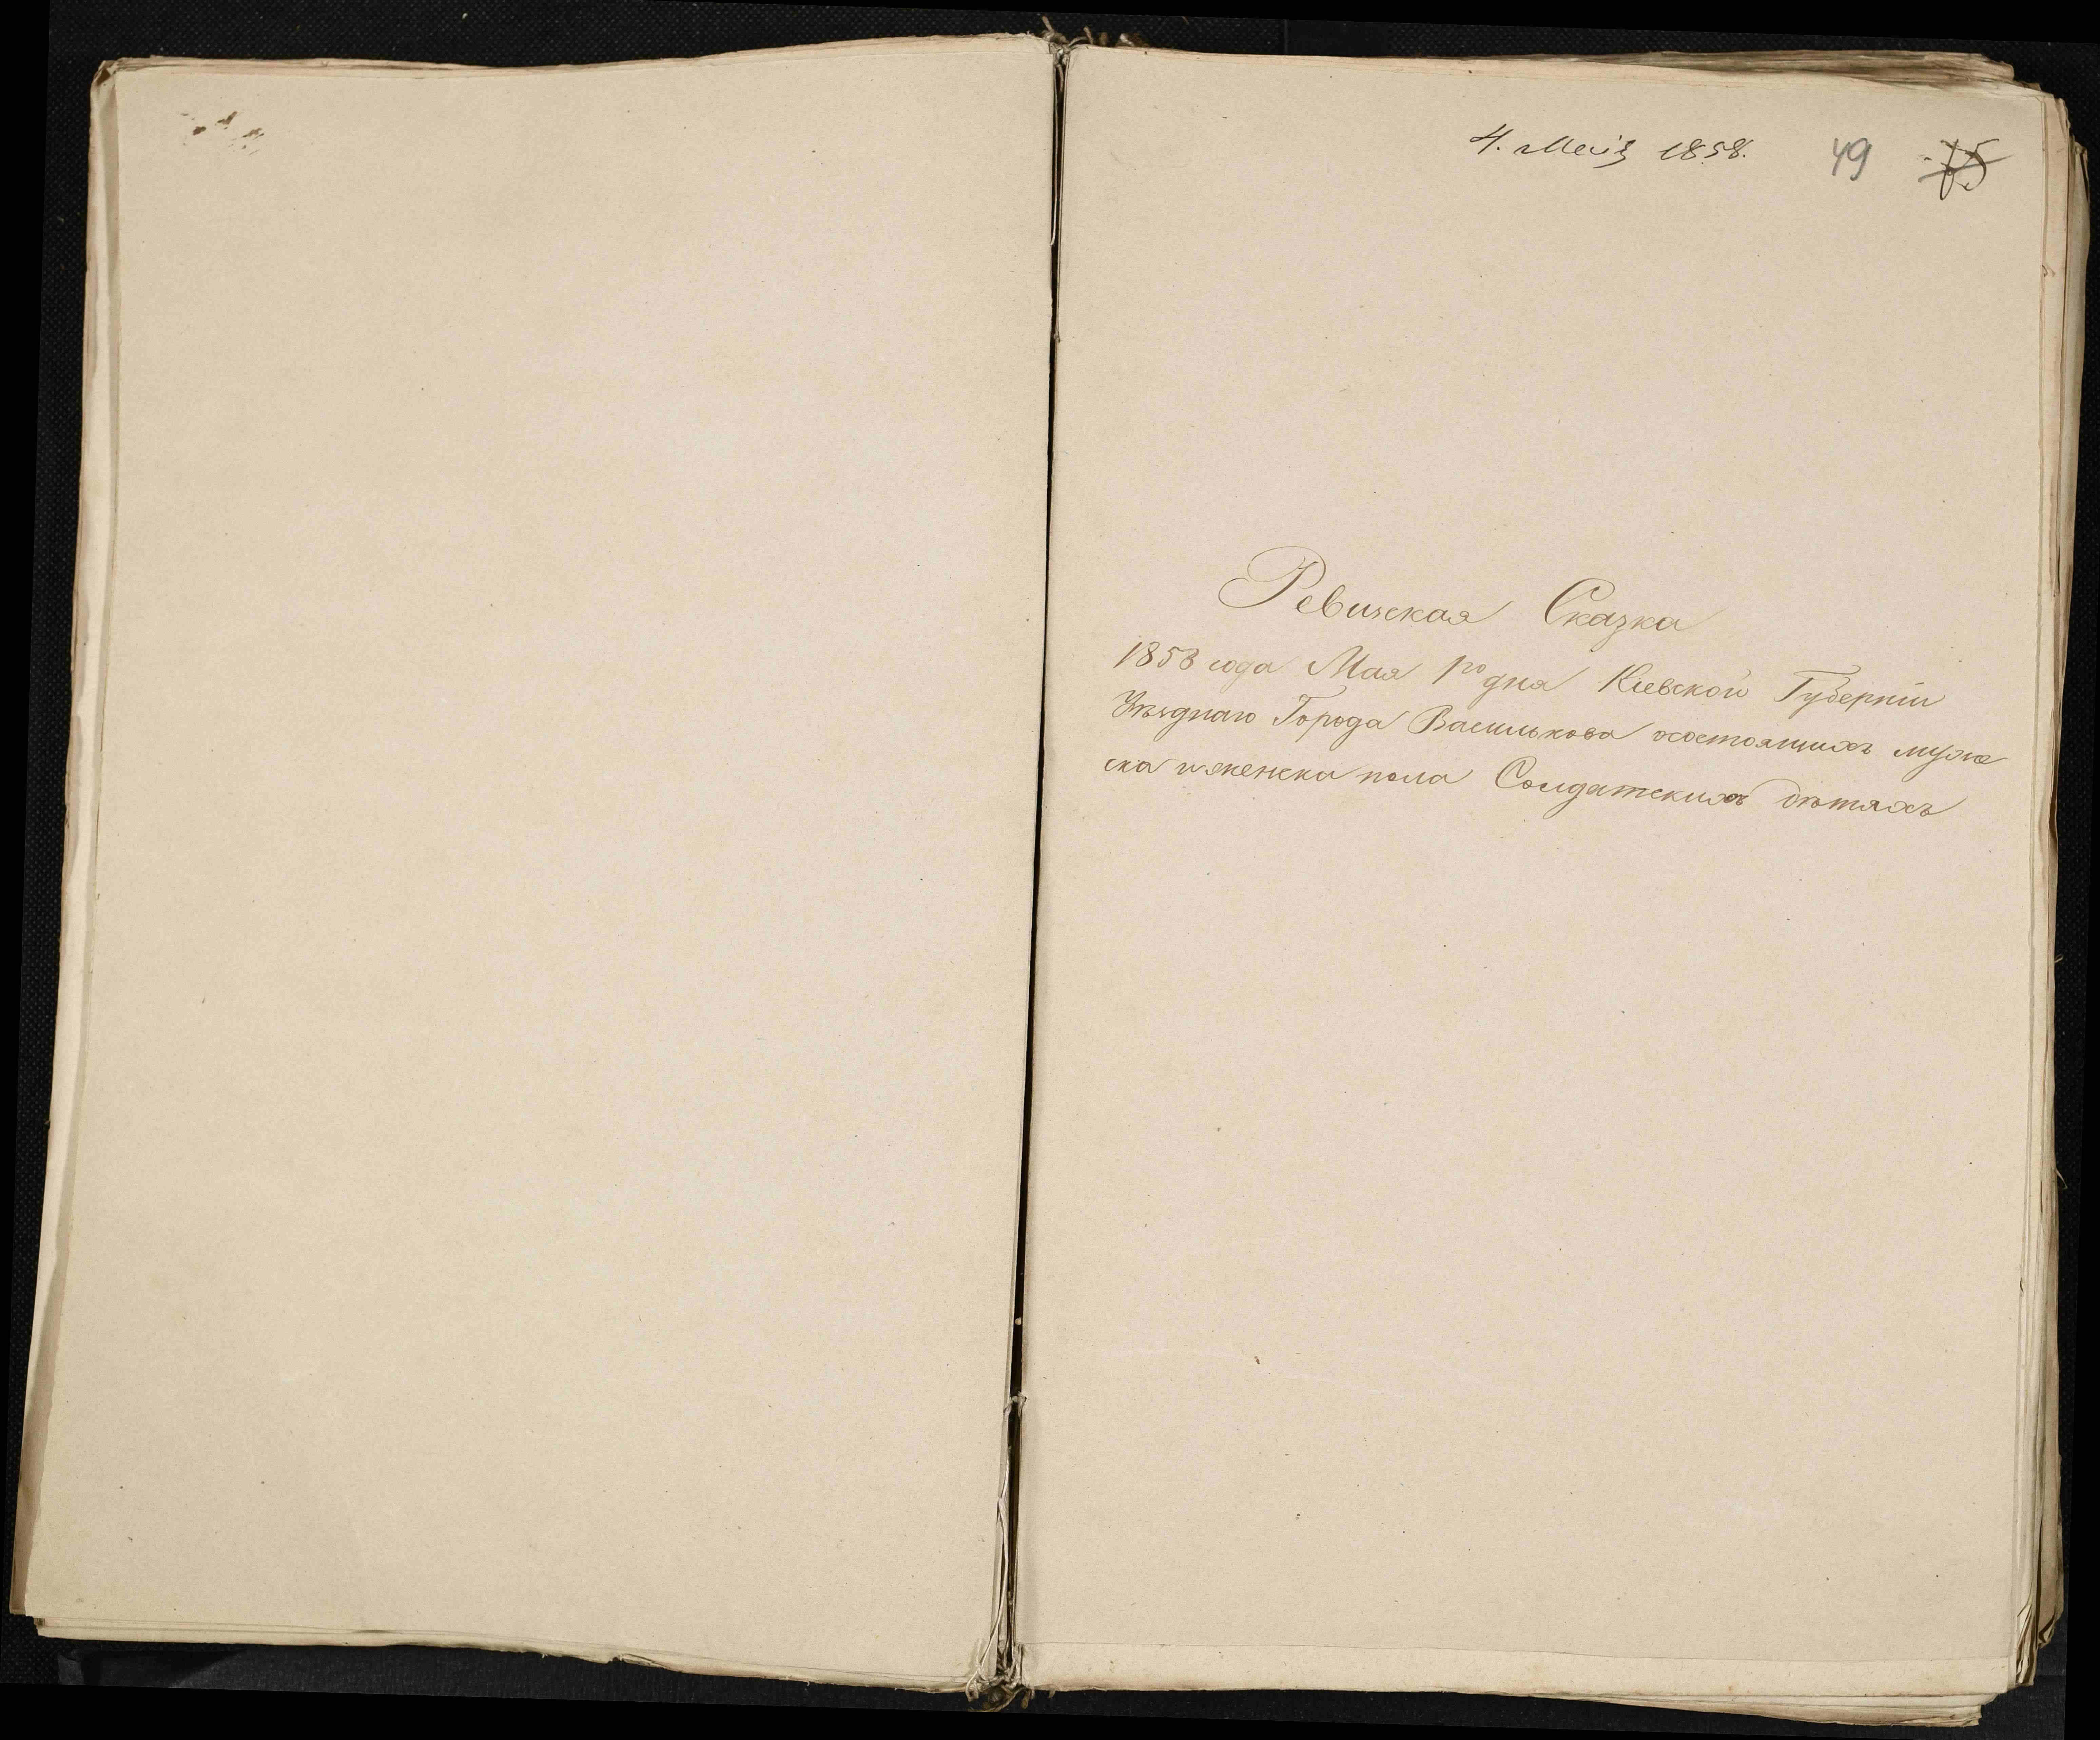 4. Маія 1858. 49 75
Ревизская Сказка
1858 года Мая 1го дня Кіевской Губерніи
Уѣзднаго Города Василькова осостоящихъ муже
ска иженска пола Солдатскихъ дѣтяхъ